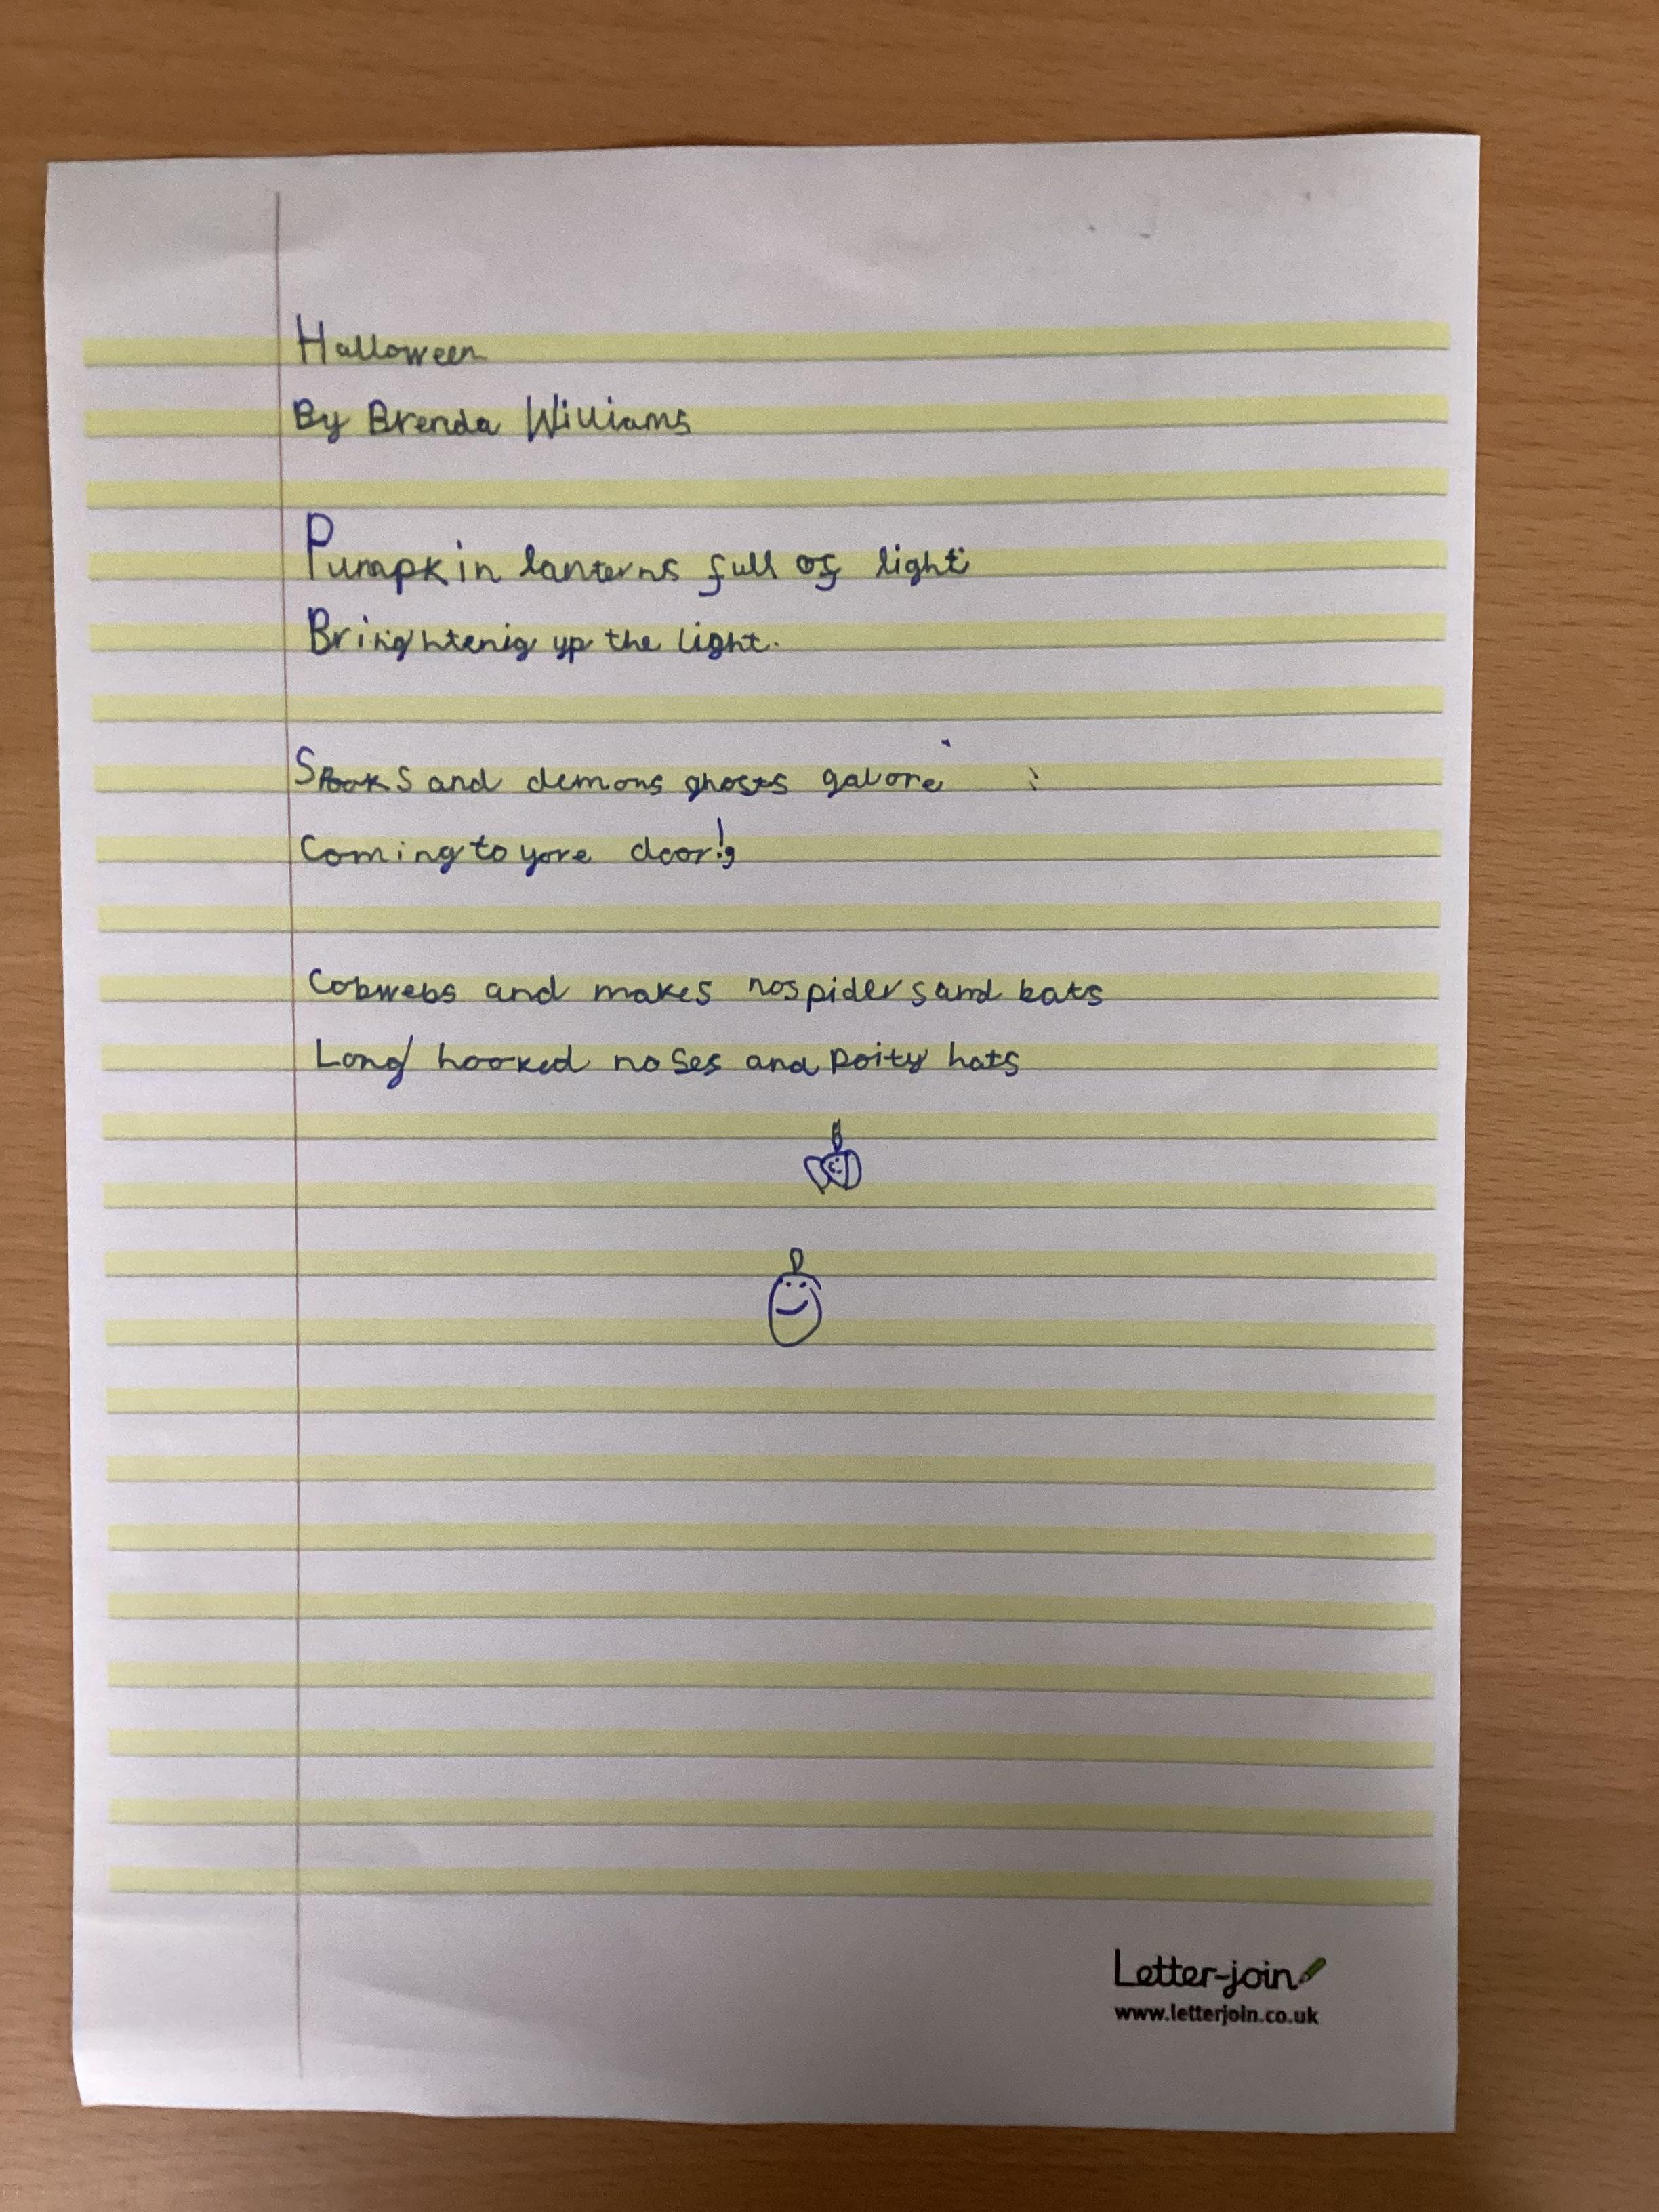 Halloween
By Brenda Williams
Pumpkin lanterns full of light
Bringhtenig up the light.
Spooks and demons ghosts galore
Coming to yore door!
Cobwebs and makes no spiders and bats
Long hooked noses and poity hats
Letter-join
www.letterjoin.co.uk